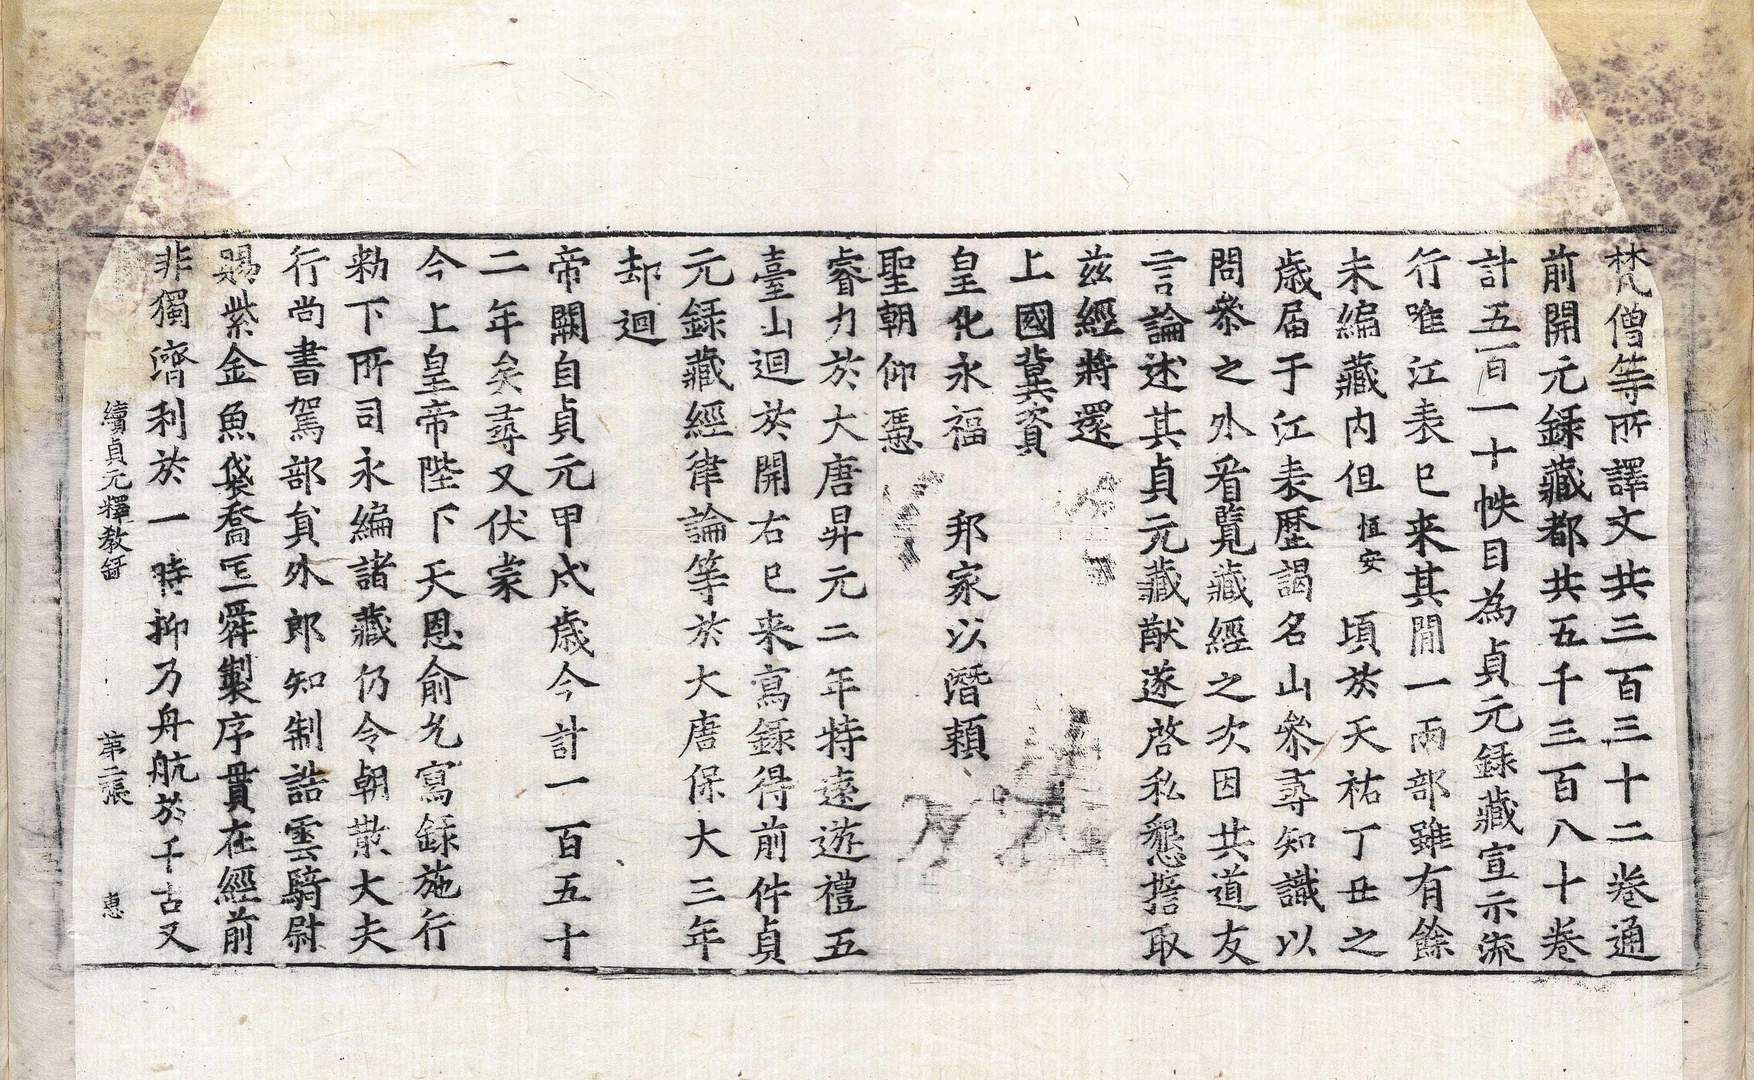 梵僧等所譯文共三百三十二卷通
前開元錄藏都共五千三百八十卷
計五百一十帙目為貞元録藏宣示流
行唯江表已来其閒一兩部雖有餘
未編藏内但恒安頃於天祐丁丑之
歲届于江表歷謁名山叅尋知識以
問叅之外看覽藏經之次因共道友
言論述其貞元藏猷遂啓私懇擔取
茲經將還
上國冀資
皇化永福　邦家以潛賴
聖朝仰憑
睿力於大唐昇元二年特遠遊禮五
臺山迴於開右已来寫録得前件貞
元録藏經律論等於大唐保大三年
却迴
帝闕自貞元甲戌歲今計一百五十
二年矣尋又伏蒙
今上皇帝陛下天恩俞允寫録施行
勑下所司永編諸藏仍令朝散大夫
行尚書駕部貟外郎知制誥雲騎尉
賜紫金魚袋喬匡舜製序貫在經前
非獨濟利於一時抑乃舟航於千古又
續貞元釋教録　第二張　惠